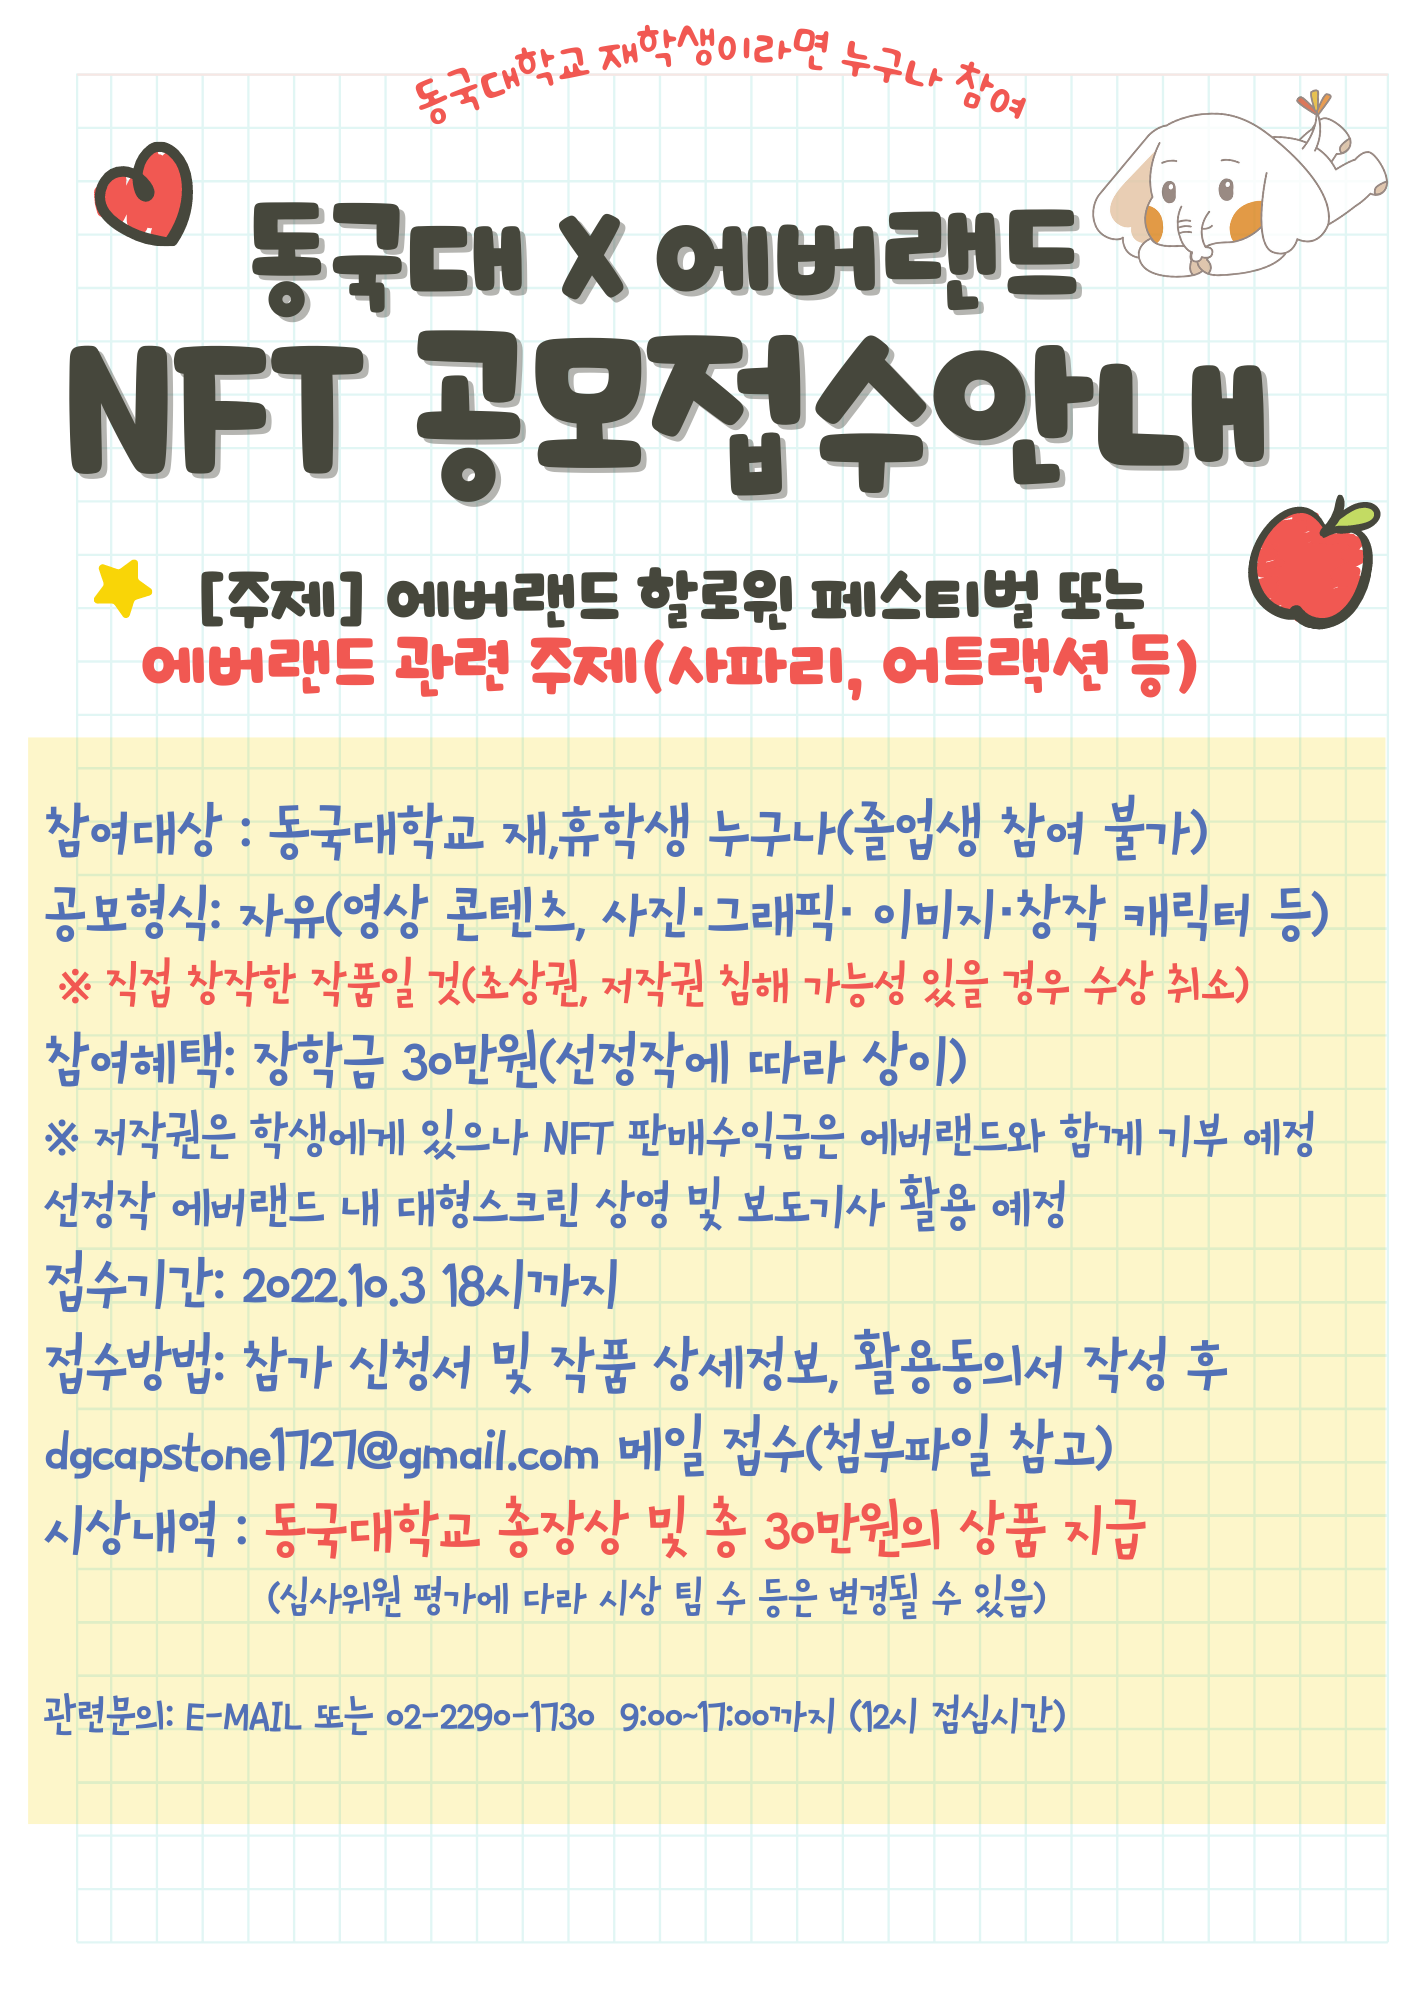 동국대학교 재학생이라면 누구나 참여
동국대 X 에버랜드
NFT 공모접수안내
[주제] 에버랜드 할로윈 페스티벌 또는
에버랜드 관련 주제(사파리, 어트랙션 등)
참여대상 : 동국대학교 재,휴학생 누구나(졸업생 참여 불가)
공모형식: 자유(영상 콘텐츠, 사진·그래픽· 이미지·창작 캐릭터 등)
※ 직접 창작한 작품일 것(초상권, 저작권 침해 가능성 있을 경우 수상 취소)
참여혜택: 장학금 30만원(선정작에 따라 상이)
※ 저작권은 학생에게 있으나 NFT 판매수익금은 에버랜드와 함께 기부 예정
선정작 에버랜드 내 대형스크린 상영 및 보도기사 활용 예정
접수기간: 2022.10.3 18시까지
접수방법: 참가 신청서 및 작품 상세정보, 활용동의서 작성 후
dgcapstone1727@gmail.com 메일 접수(첨부파일 참고)
시상내역 : 동국대학교 총장상 및 총 30만원의 상품 지급
(심사위원 평가에 다라 시상 팁 수 등은 변경될 수 있음)
관련문의: E-MAIL 또는 02-2290-1730 9:00~17:00까지 (12시 점심시간)